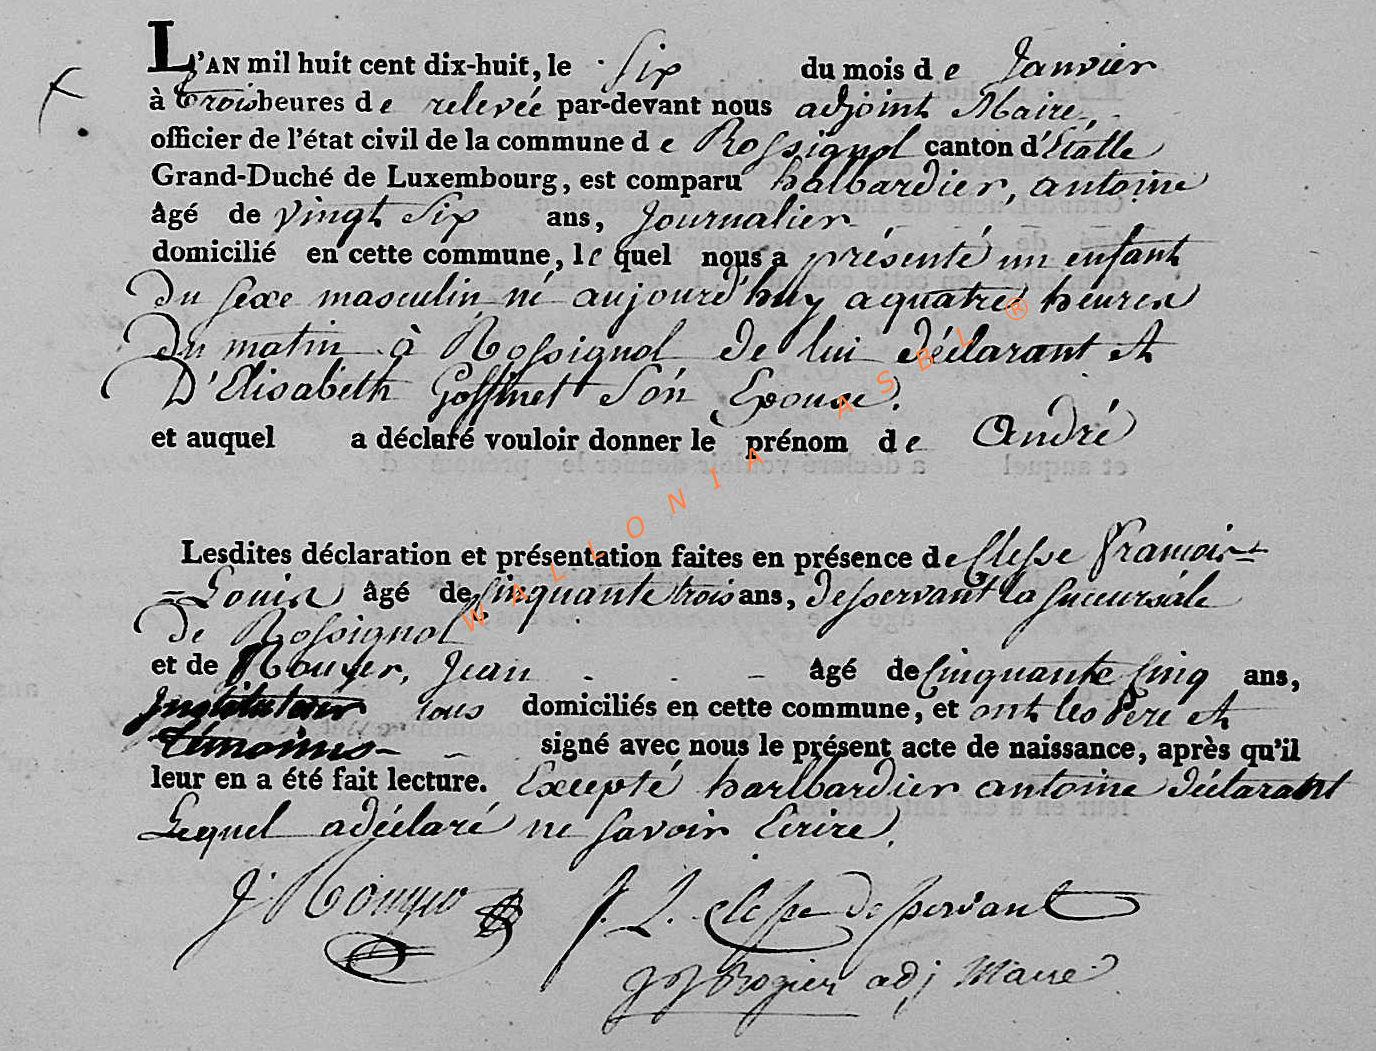 L'AN mil huit cent dix-huit, le six du mois de Janvier
à trois heures de relevée par-devant nous adjoint Maire,
officier de l'état civil de la commune de Rossignol canton d'Etalle
Grand-Duché de Luxembourg, est comparu halbardier, antoine
âgé de vingt Six ans, Journalier
domicilié en cette commune, lequel nous a présenté un enfant
Du sexe masculin né aujourd'huy a quatre heures
Du matin à Rossignol de lui déclarant et
D'Elisabeth Goffinet Son Epouse.
et auquel a déclaré vouloir donner le prénom de André
Lesdites déclaration et présentation faites en présence de Clesse François
=Louis âgé de Cinquante trois ans, desservant la Succursale
de Rossignol
et de Rouyer, Jean âgé de Cinquante Cinq ans,
Instituteur tous domiciliés en cette commune, et ont les Père et
témoins signé avec nous le présent acte de naissance, après qu'il
leur en a été fait lecture. Excepté harlbardier antoine déclarant
Lequel a déclaré ne savoir Ecrire.
J. Rouyer F. L. Clesse desservant
Rogier adj Maire
WALLONIA ASBL ®